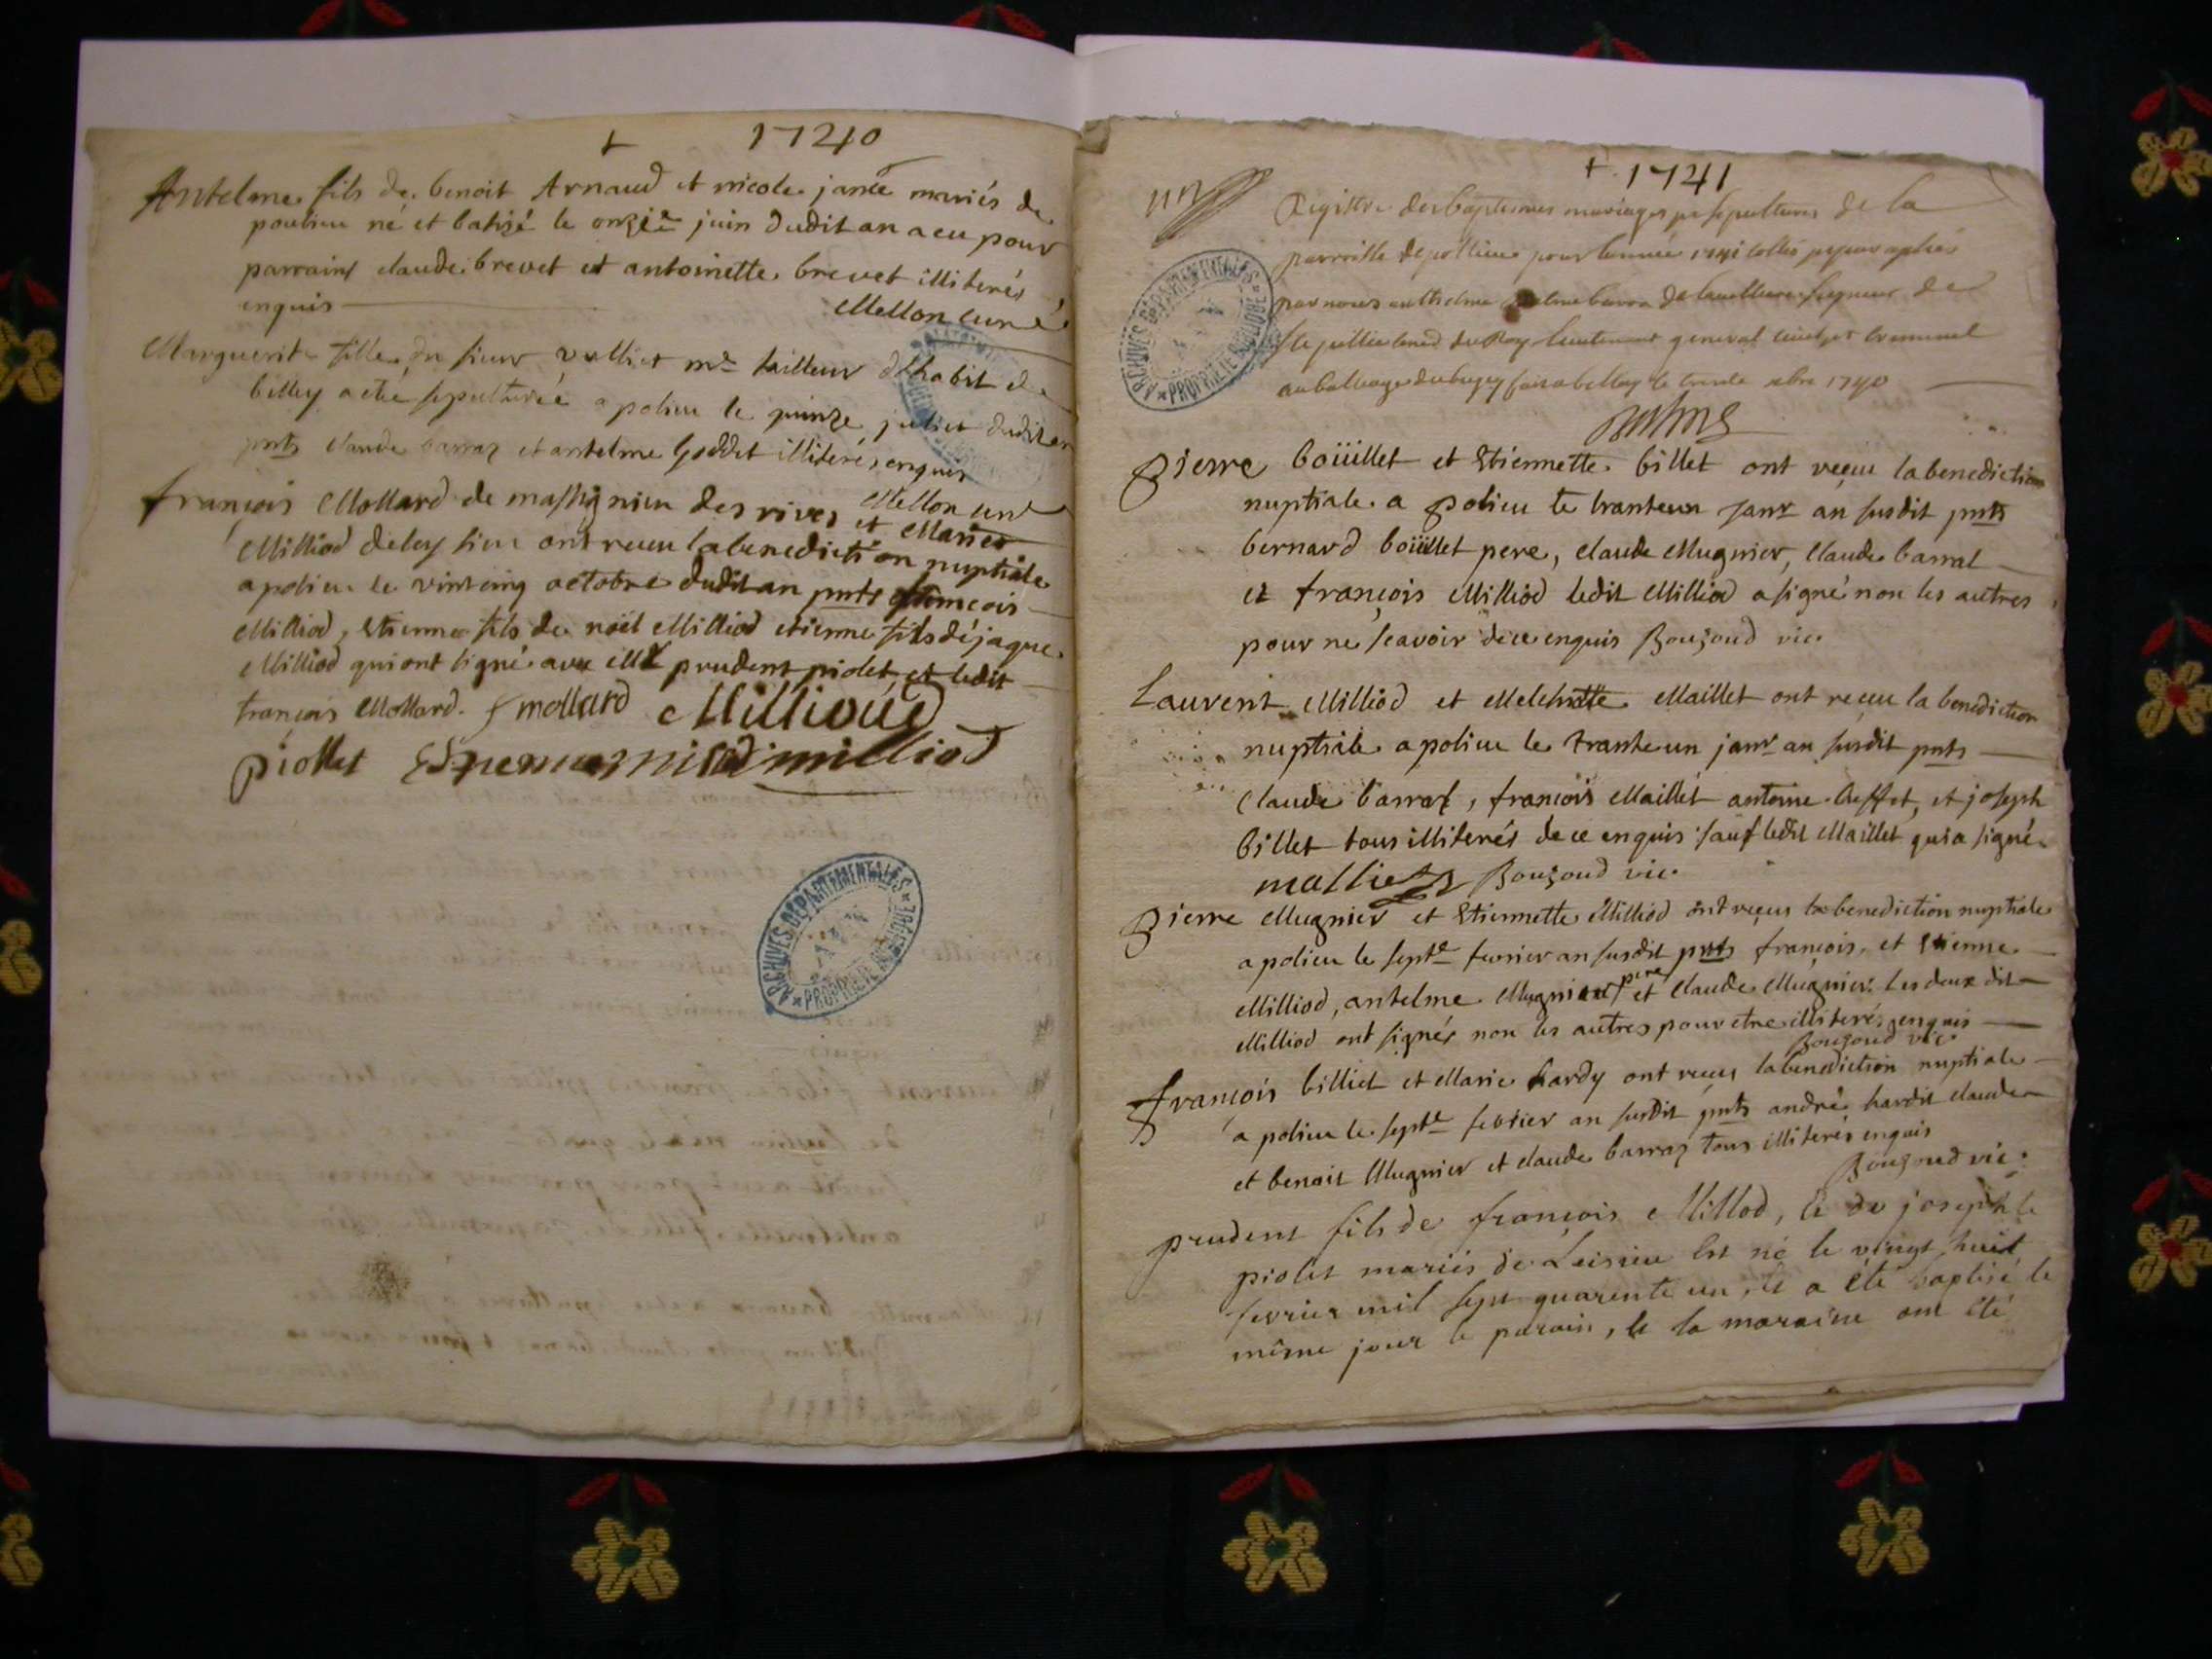 + 1740
Antelme fils de benoit Arnaud et nicole janté mariés de
poulieu né et batizé le onzie juin dudit an a eu pour
parrains claude brevet et antoinette brevet illiterés
enquis
Mellon curé
Marguerite fille du sieur vulliet me tailleur dhabit de
belley a eté sepulturée a polieu le quinze juliet dudit an
pnts claude barraz et antelme goddet illiterés enquis
Mellon curé
françois Mollard de massignieu des rives et Marie
Milliod de leysieu ont receu la benediction nuptiale
a polieu le vintcinq octobre dudit an pnts françois
Milliod, Etienne fils de noël Milliod etienne fils de jaque
Milliod qui ont signé avec Mr prudent piolet et ledit
françois Mollard. f mollard Millioud
piollet milliod
ARCHIVES DÉPARTEMENTALES
AIN
PROPRIÉTÉ PUBLIQUE
+ 1741
Registre des baptesmes mariages et sepultures de la
parroisse de pollieu pour lannée 1741 cottés et paraphés
par nous anthelme seigneur de
du Roy lieutenant general civil et criminel
au balliage du bugey fait a belley le trente xbre 1740
ARCHIVES DÉPARTEMENTALES
AIN
PROPRIÉTÉ PUBLIQUE
Pierre boüillet et Etiennette billet ont reçeu la benediction
nuptiale a polieu le tranteun janr an susdit pnts
bernard boüillet pere, claude Mugnier, Claude barral
et françois Milliod ledit Milliod a signé non les autres
pour ne scavoir de ce enquis Bouzoud vic.
Laurent Milliod et Melchiotte Maillet ont receu la benediction
nuptiale a polieu le tranteun janr an susdit pnts
Claude barral, françois Maillet antoine et joseph
billet tous illiterés de ce enquis sauf ledit Maillet qui a signé
malliet Bouzoud vic.
Pierre Mugnier et Etiennette Milliod ont reçus la benediction nuptiale
a polieu le septe fevrier an susdit pnts françois et Etienne
Milliod, antelme Mugnier pere et claude Mugnier. Les deux dit
Milliod ont signés non les autres pour etre illiterés enquis
Bouzoud vic.
françois billiet et Marie hardy ont reçus la benediction nuptiale
a polieu le septe febvrier an susdit pnts andré hardit claude
et benoit Mugnier et claude barraz tous illiterés enquis
Bouzoud vic.
prudent fils de françois Milliod, et de josephte
piolet mariés de Leisieu est né le vingt huit
fevrier mil sept quarente un, et a été baptisé le
même jour le parain, et la maraine ont été